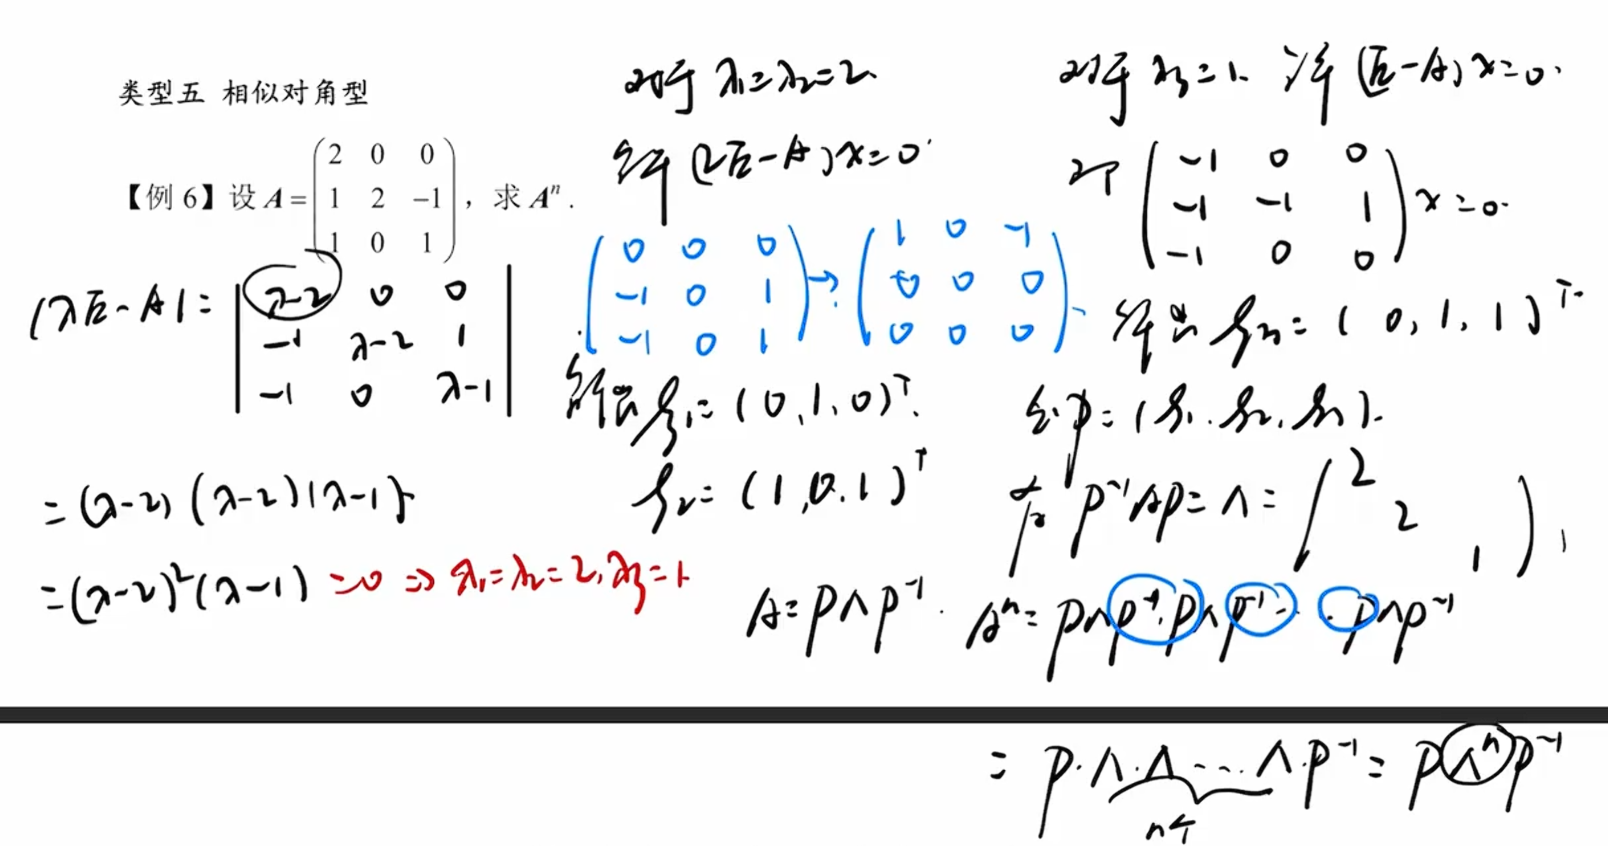 类型五 相似对角型
【例 6】设 A = ( 2 0 0
1 2 -1
1 0 1 ) ，求 Aⁿ .
|λE-A| = | λ-2 0 0
-1 λ-2 1
-1 0 λ-1 |
= (λ-2) (λ-2)(λ-1)
= (λ-2)²(λ-1) =0 ⇒ λ₁=λ₂=2, λ₃=1.
对于 λ₁=λ₂=2.
解 (2E-A)x=0.
( 0 0 0
-1 0 1
-1 0 1 ) → ( 1 0 -1
0 0 0
0 0 0 ).
解出 ξ₁=(0,1,0)ᵀ.
ξ₂=(1,0,1)ᵀ
对于 λ₃=1. 解 (E-A)x=0.
即 ( -1 0 0
-1 -1 1
-1 0 0 ) x=0.
解出 ξ₃=(0,1,1)ᵀ.
令P=(ξ₁.ξ₂.ξ₃).
有 P⁻¹AP=Λ=( 2
2
1 ),
A=PΛP⁻¹. Aⁿ=PΛP⁻¹.PΛP⁻¹...PΛP⁻¹
= P·Λ·Λ…Λ·P⁻¹ = PΛⁿP⁻¹
n个